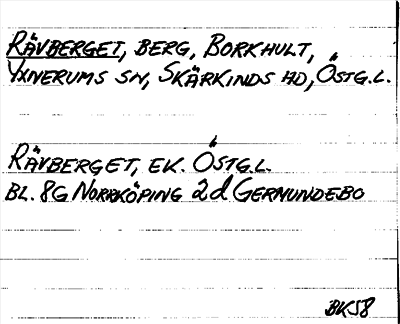 RÄVBERGET, BERG, BORKHULT,
YXNERUMS SN, SKÄRKINDS HD, ÖSTG.L.
RÄVBERGET, EK. ÖSTG.L.
BL. 8G NORRKÖPING 2d GERMUNDEBO
BK58